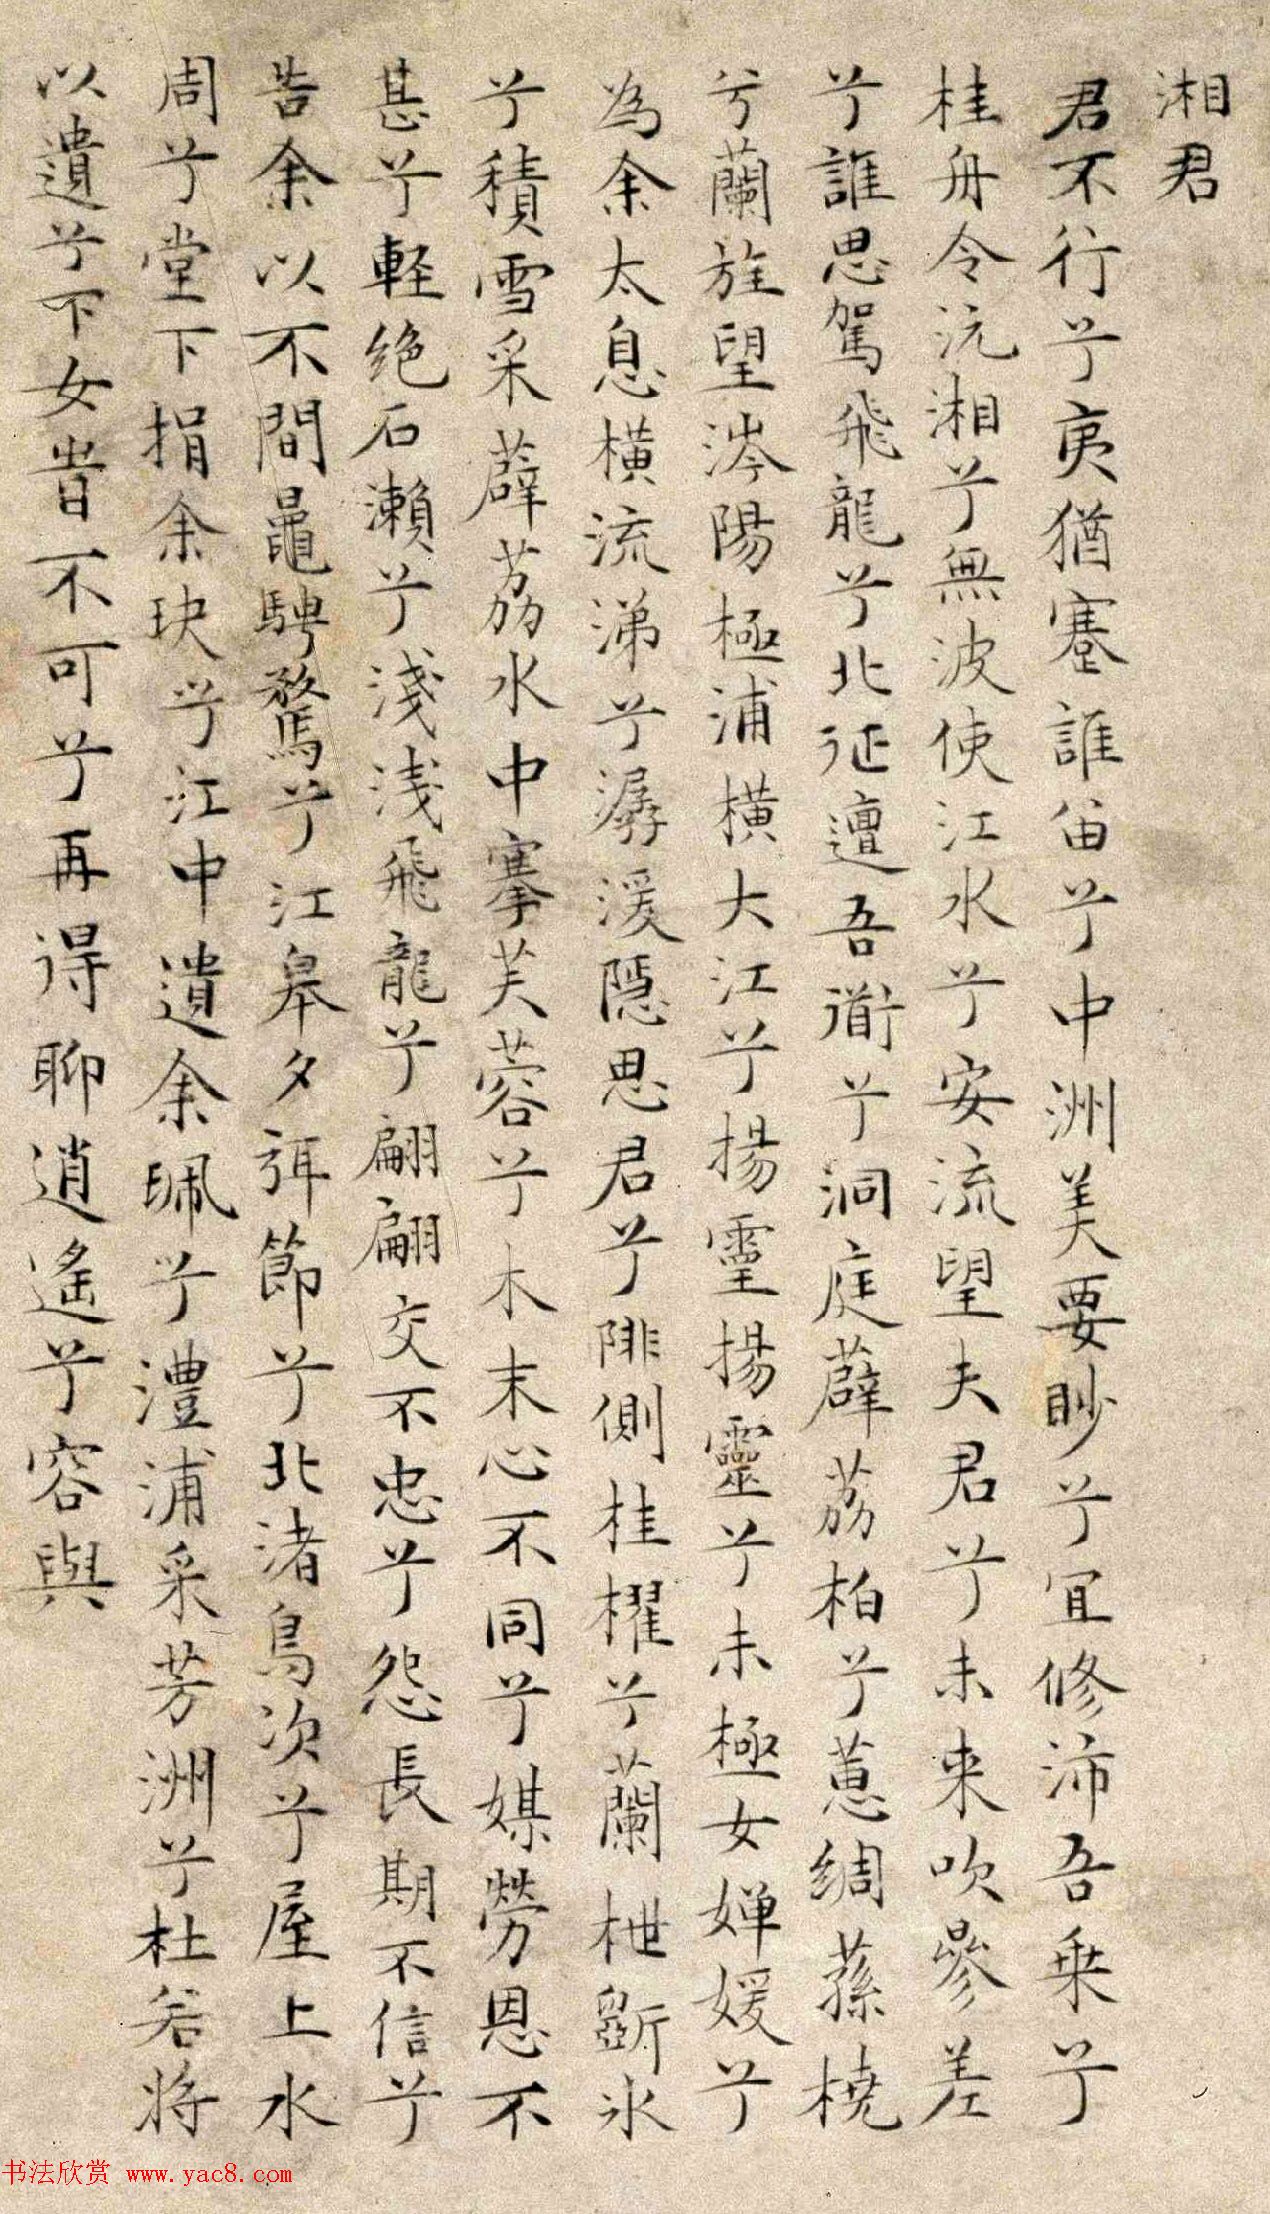 湘君
君不行兮夷猶蹇誰留兮中洲美要眇兮宜修沛吾乗兮
桂舟令沅湘兮無波使江水兮安流望夫君兮未来吹參差
兮誰思駕飛龍兮北征邅吾衜兮洞庭薜荔柏兮蕙綢蓀橈
兮蘭旌望涔陽極浦横大江兮揚霊揚靈兮未極女嬋媛兮
為余太息横流涕兮潺湲隱思君兮陫側桂櫂兮蘭枻斵氷
兮積雪采薜荔水中搴芙蓉兮木末心不同兮媒勞恩不
甚兮軽绝石瀬兮淺淺飛龍兮翩翩交不忠兮怨長期不信兮
告余以不間鼂騁騖兮江皋夕弭節兮北渚鳥次兮屋上水
周兮堂下捐余玦兮江中遺余珮兮澧浦采芳洲兮杜若将
以遺兮下女旹不可兮再得聊逍遙兮容與
书法欣赏 www.yac8.com